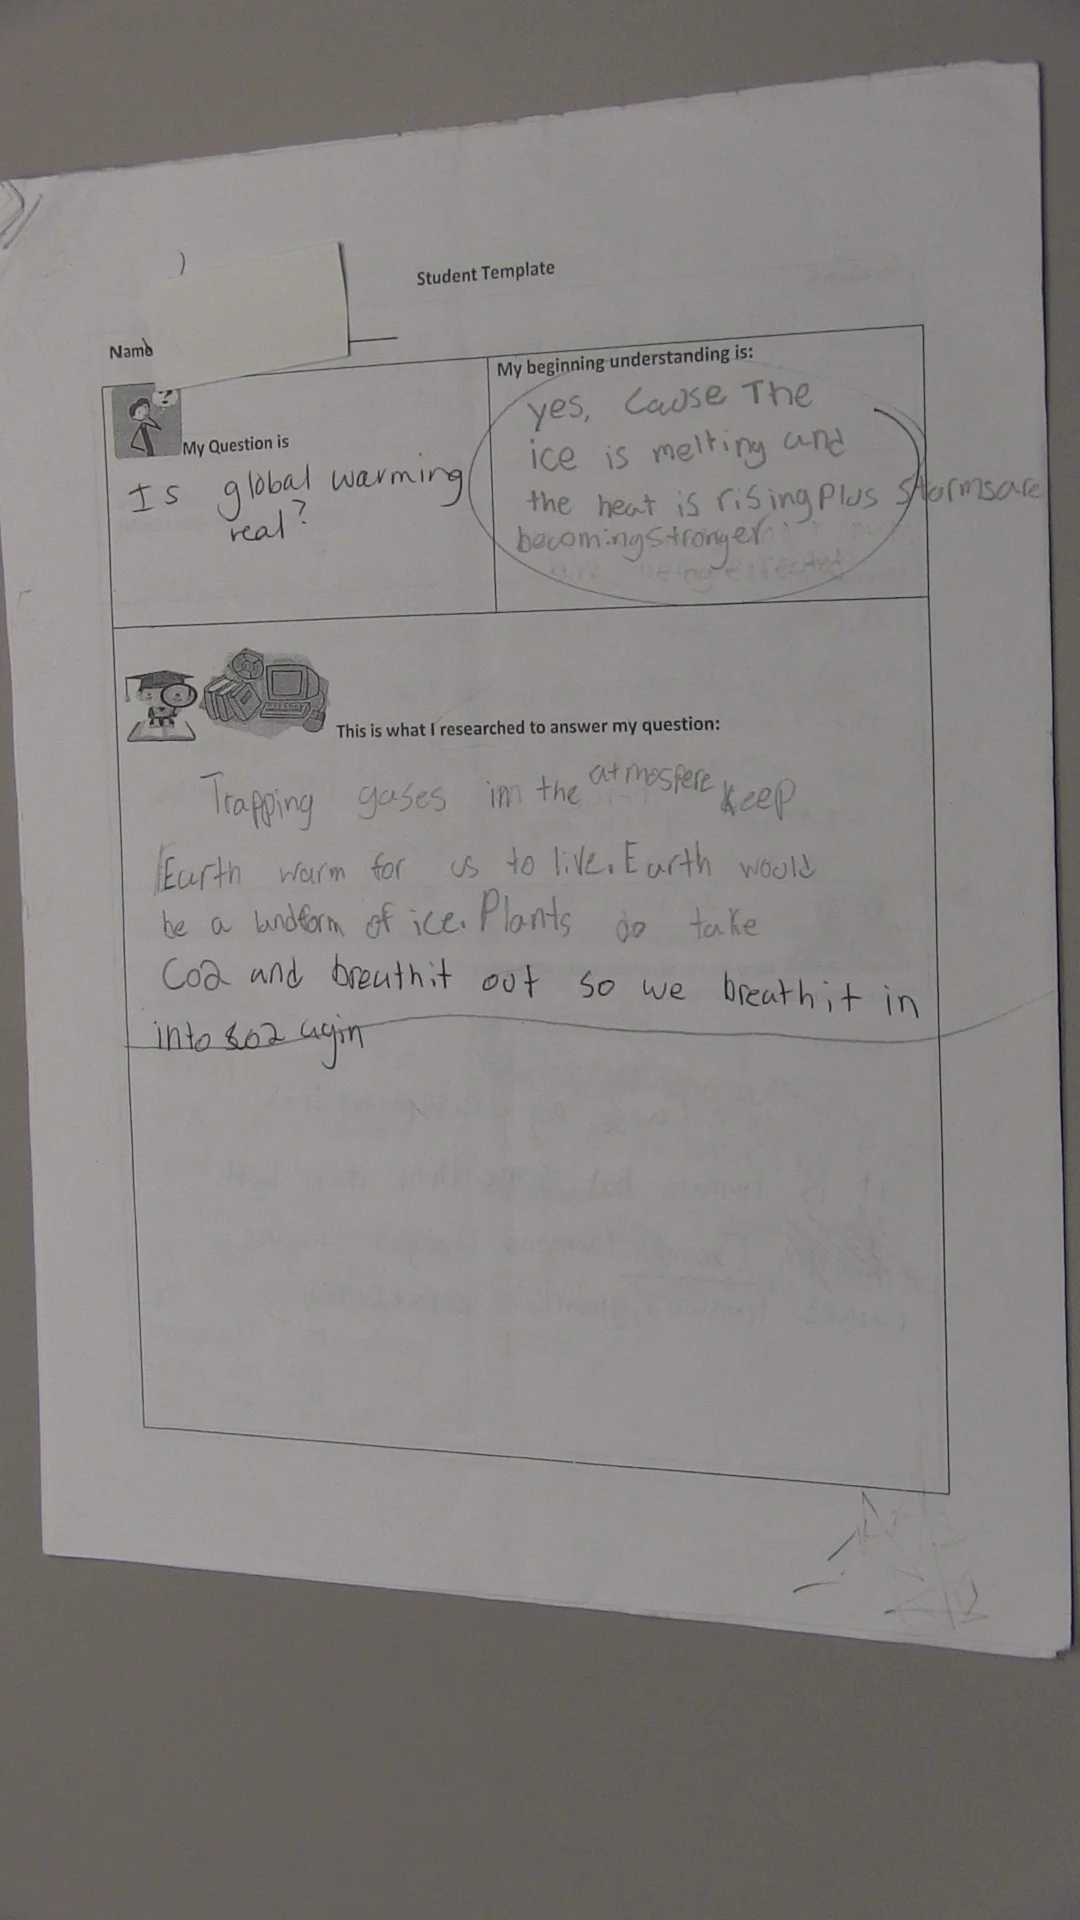 Student Template
Name
My Question is
Is global warming
real?
My beginning understanding is:
yes, Cause The
ice is melting and
the heat is rising Plus Stormsare
becomingstronger
being effected
This is what I researched to answer my question:
Trapping gases in the atmosfere keep
Earth warm for us to live. Earth would
be a landform of ice. Plants do take
Co2 and breathit out so we breathit in
into co2 agin